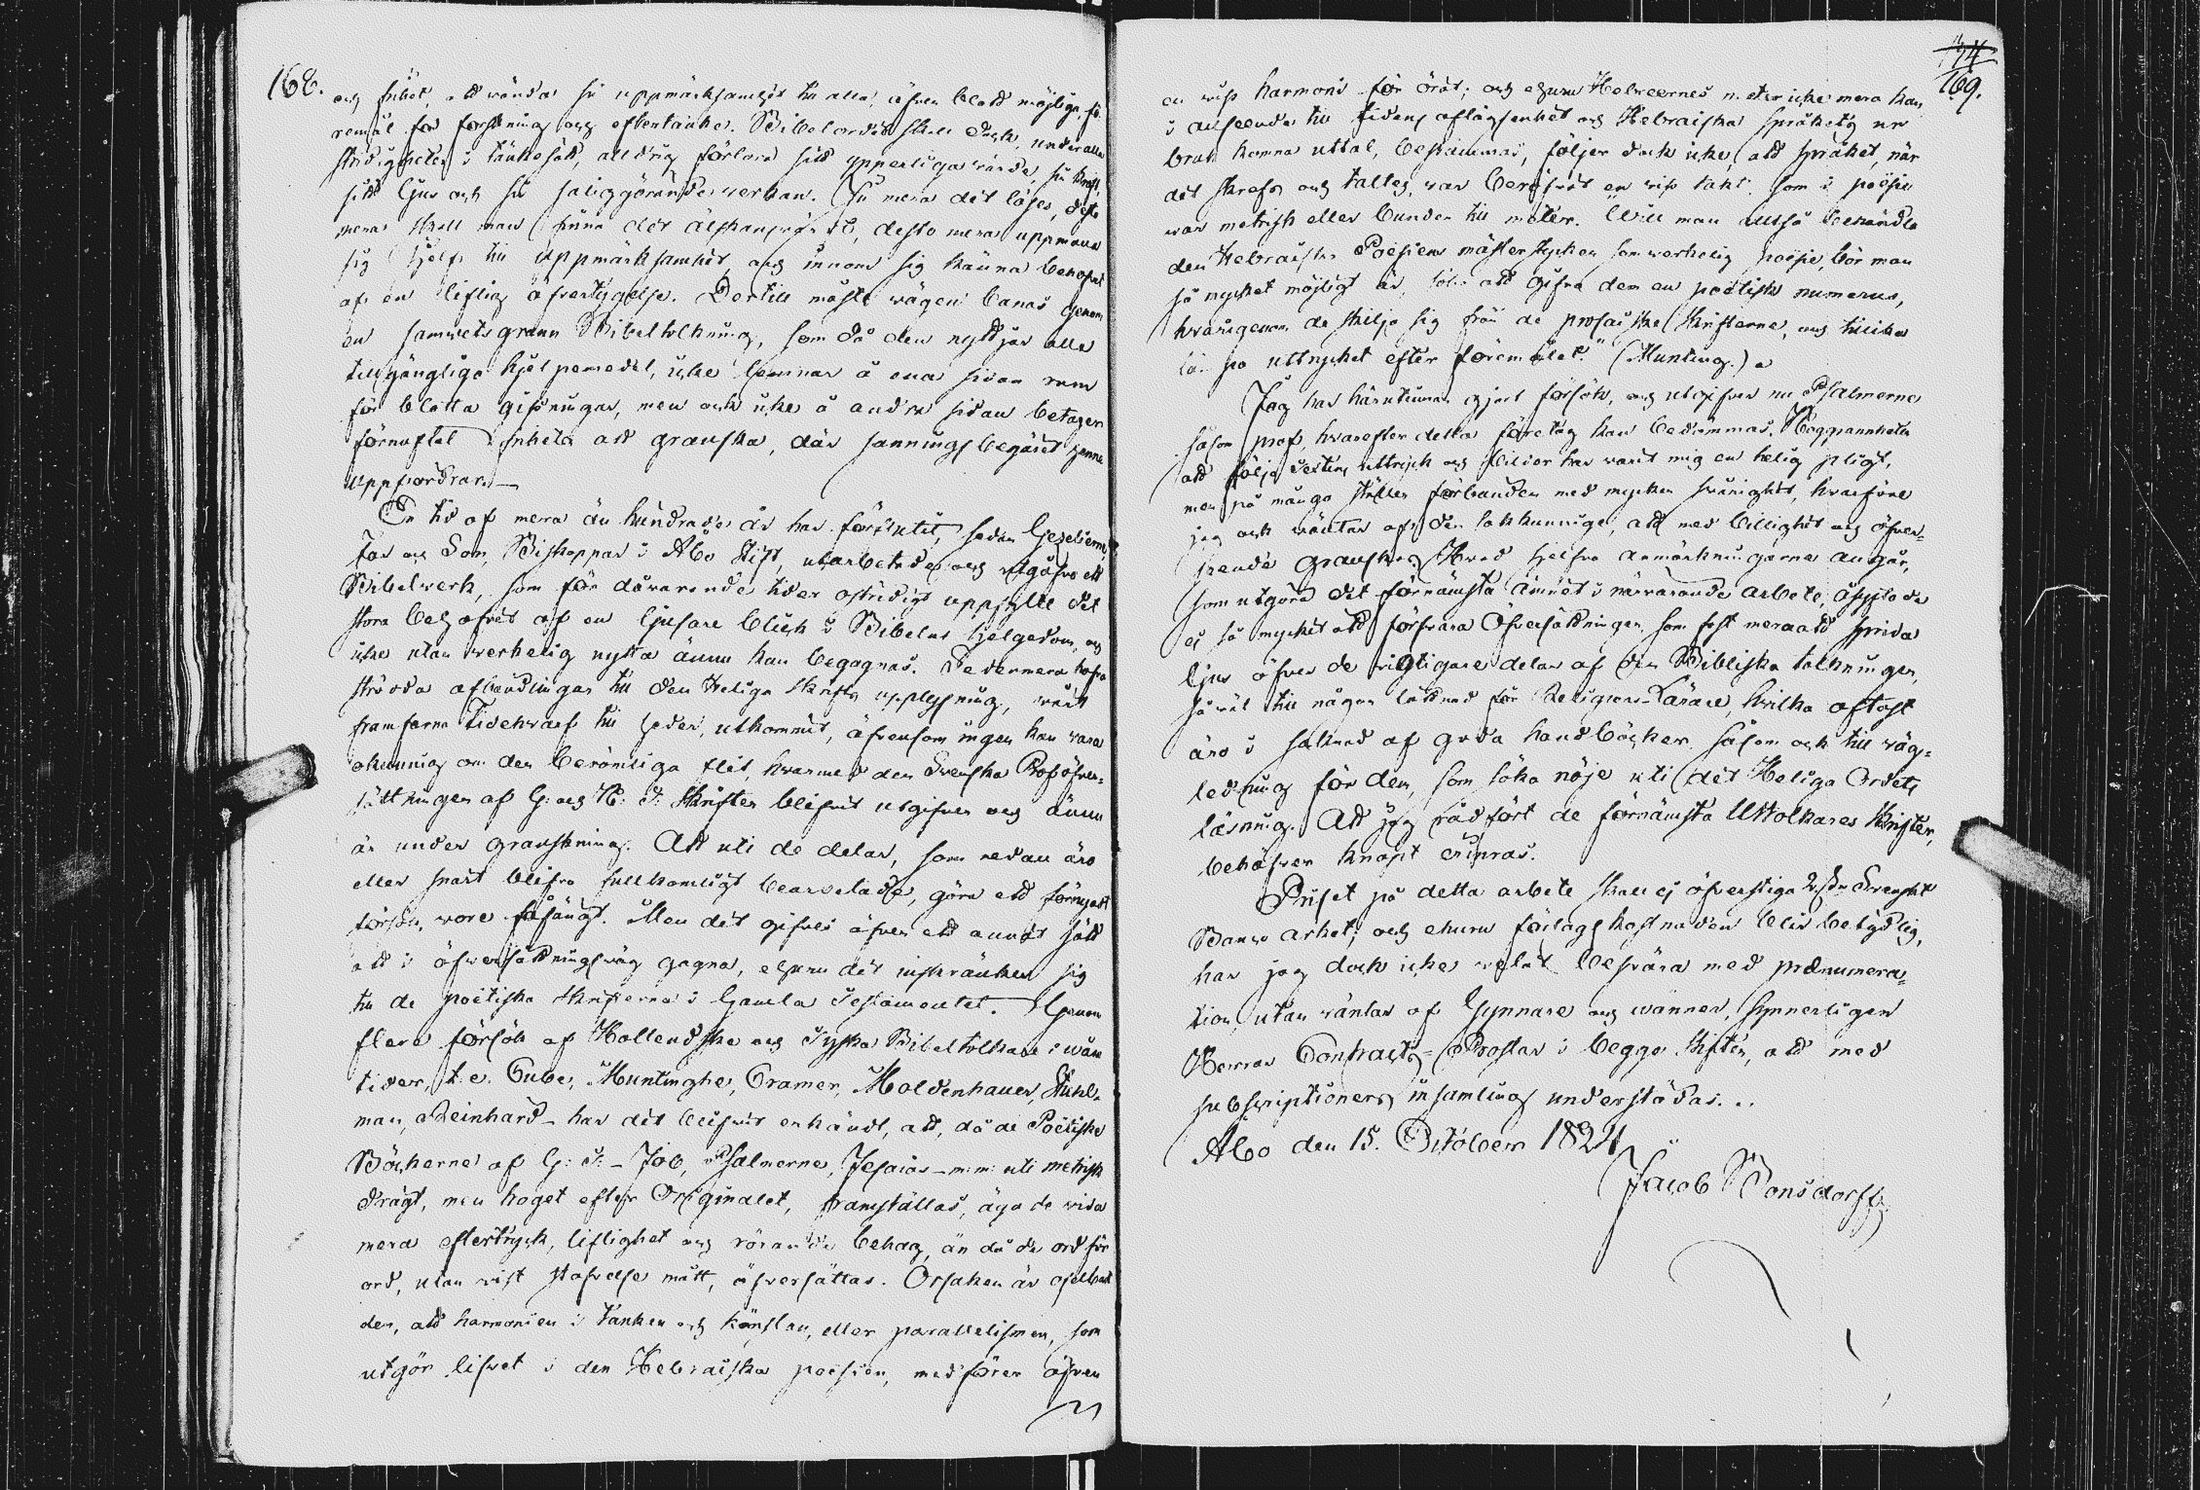 168.
och frihet, att wända sin uppmärksamhet til alla, äfwen blott möjliga fö-
remål för forskning och eftertanke. Bibelordet skall dock, under alla
stridigheter i tänkesätt, alldrig förlora sitt ypperliga wärde, sin kraft,
sitt ljus och sin saliggörande werkan. Ju mera det läses, desto
mera skall man finna det älskansvärdt, desto mera uppmana
sig sjelf til uppmärksamhet, och innom sig känna behofvet
af en liflig öfvertygelse. Dertill måste wägen banas genom
en samwetsgrann Bibeltolkning, som då den nyttjar alla
tillgängliga hjelpemedel, icke lemnar å ena sidan rum
för blotta gissningar, men ock icke å andra sidan betager
förnuftet friheten att granska, där sanningsbegäret henne
uppfordrar.
En tid af mera än hundrade år har förflutit, sedan Gezelierne,
Far och Son, Biskoppar i Åbo Stift, utarbetade och utgåfvo ett
Bibelwerk, som för dåvarande tider ostridigt uppfyllt det
stora behofvet af en ljusare blick i Bibelns helgedom, och
icke utan werkelig nytta ännu kan begagnas. Sedermera hafva
strödda afhandlingar til den Heliga Skrifts upplysning, wårt
framfarna Tidehwarf til heder, utkommit, äfvensom ingen kan vara
okunnig om den berömliga flit, hvarmed den Svenska Proföfver-
sättningen af G: och N: T: Skrifter blifvit utgifven och ännu
är under granskning. Att uti de delar, som redan äro
eller snart blifva fullkomligt bearbetade, göra ett förnyadt
försök, wore fåfängt. Men det gifves äfven ett annat sätt
att i öfversättningswäg gagna, ehuru det inskränker sig
til de poëtiska skrifterna i Gamla Testamentet. Genom
flera försök af Holländska och Tyska Bibeltolkare i wåra
tider, t. e. Cube, Muntinghe, Cramer, Moldenhauer, Stuhl-
man, Reinhard - har det blifvit erkändt, att, då de Poëtiska
Böckerne af G: T: - Job, Psalmerne, Jesaias - m: m: uti metrisk
drägt, men noget efter Originalet, framställas, äga de vida
mera eftertryck, liflighet och rörande behag, än då de ord för
ord, utan vist stafvelse mått, öfversättas. Orsaken är ojelbart
den, att harmonien i tanken och känslan, eller parallelismen, som
utgör lifvet i den Hebraiska poësien, medförer äfven
169.
en viss harmoni för örat; och ehuru Hebreernes meter icke mera kan
i anseende til tidens aflägsenhet och Hebraiska språkets ur
bruk komna uttal, bestämmas, följer dock icke, att språket, när
det skrefs och talltes, war beröfvat en viss takt, som i poësie
war metrisk eller bunden til meter. Will man alltså behandla
den Hebraiska Poësiens mästerstycken som werkelig poësie, bör man
så mycket möjligt är, söka att gifva dem en poëtisk numerus,
hvarigenom de skilja sig från de prosaiska Skrifterna, och tillika
uttrycket efter föremålet." (Munting.)
Jag har härutinnan gjort försök, och utgifver nu Psalmerne
såsom prof, hvarefter detta företag kan bedömmas. Noggrannheten
att följa Textens uttryck och bilder har varit mig en helig pligt,
men på många ställen förbunden med mycken svårighet, hvarföre
jag ock väntar af den sakkunnige, att med billighet och öfver-
seende granskas. Hvad sjelfva anmärkningarne angår,
som utgöra det förnämsta ämnet i närvarande arbete, åsyfta de
ej så mycket att försvara Öfversättningen som fast mera att sprida
ljus öfver de vigtigare delar af den Bibliska tolkningen,
så väl til någon lättnad för Religions-Lärare, hvilka oftast
äro i saknad af goda handböcker, såsom ock till väg-
ledning för dem, som söka nöje uti det Heliga Ordets
läsning. Att jag rådfört de förnämsta Uttolkares Skrifter,
behöfver knapt erinras.
Priset på detta arbete skall ej öfverstiga 2 sk. Svenskt
Banco arket; och ehuru förlagskostnaden blir betydlig,
har jag dock icke welat besvära med prænumera-
tion, utan wäntar af Gynnare och wänner, synnerligen
Herrar Contracts-Prostar i begge Stiften, att med
subscriptioners insamling understödas.
Åbo den 15. October 1824
Jacob Bonsdorff